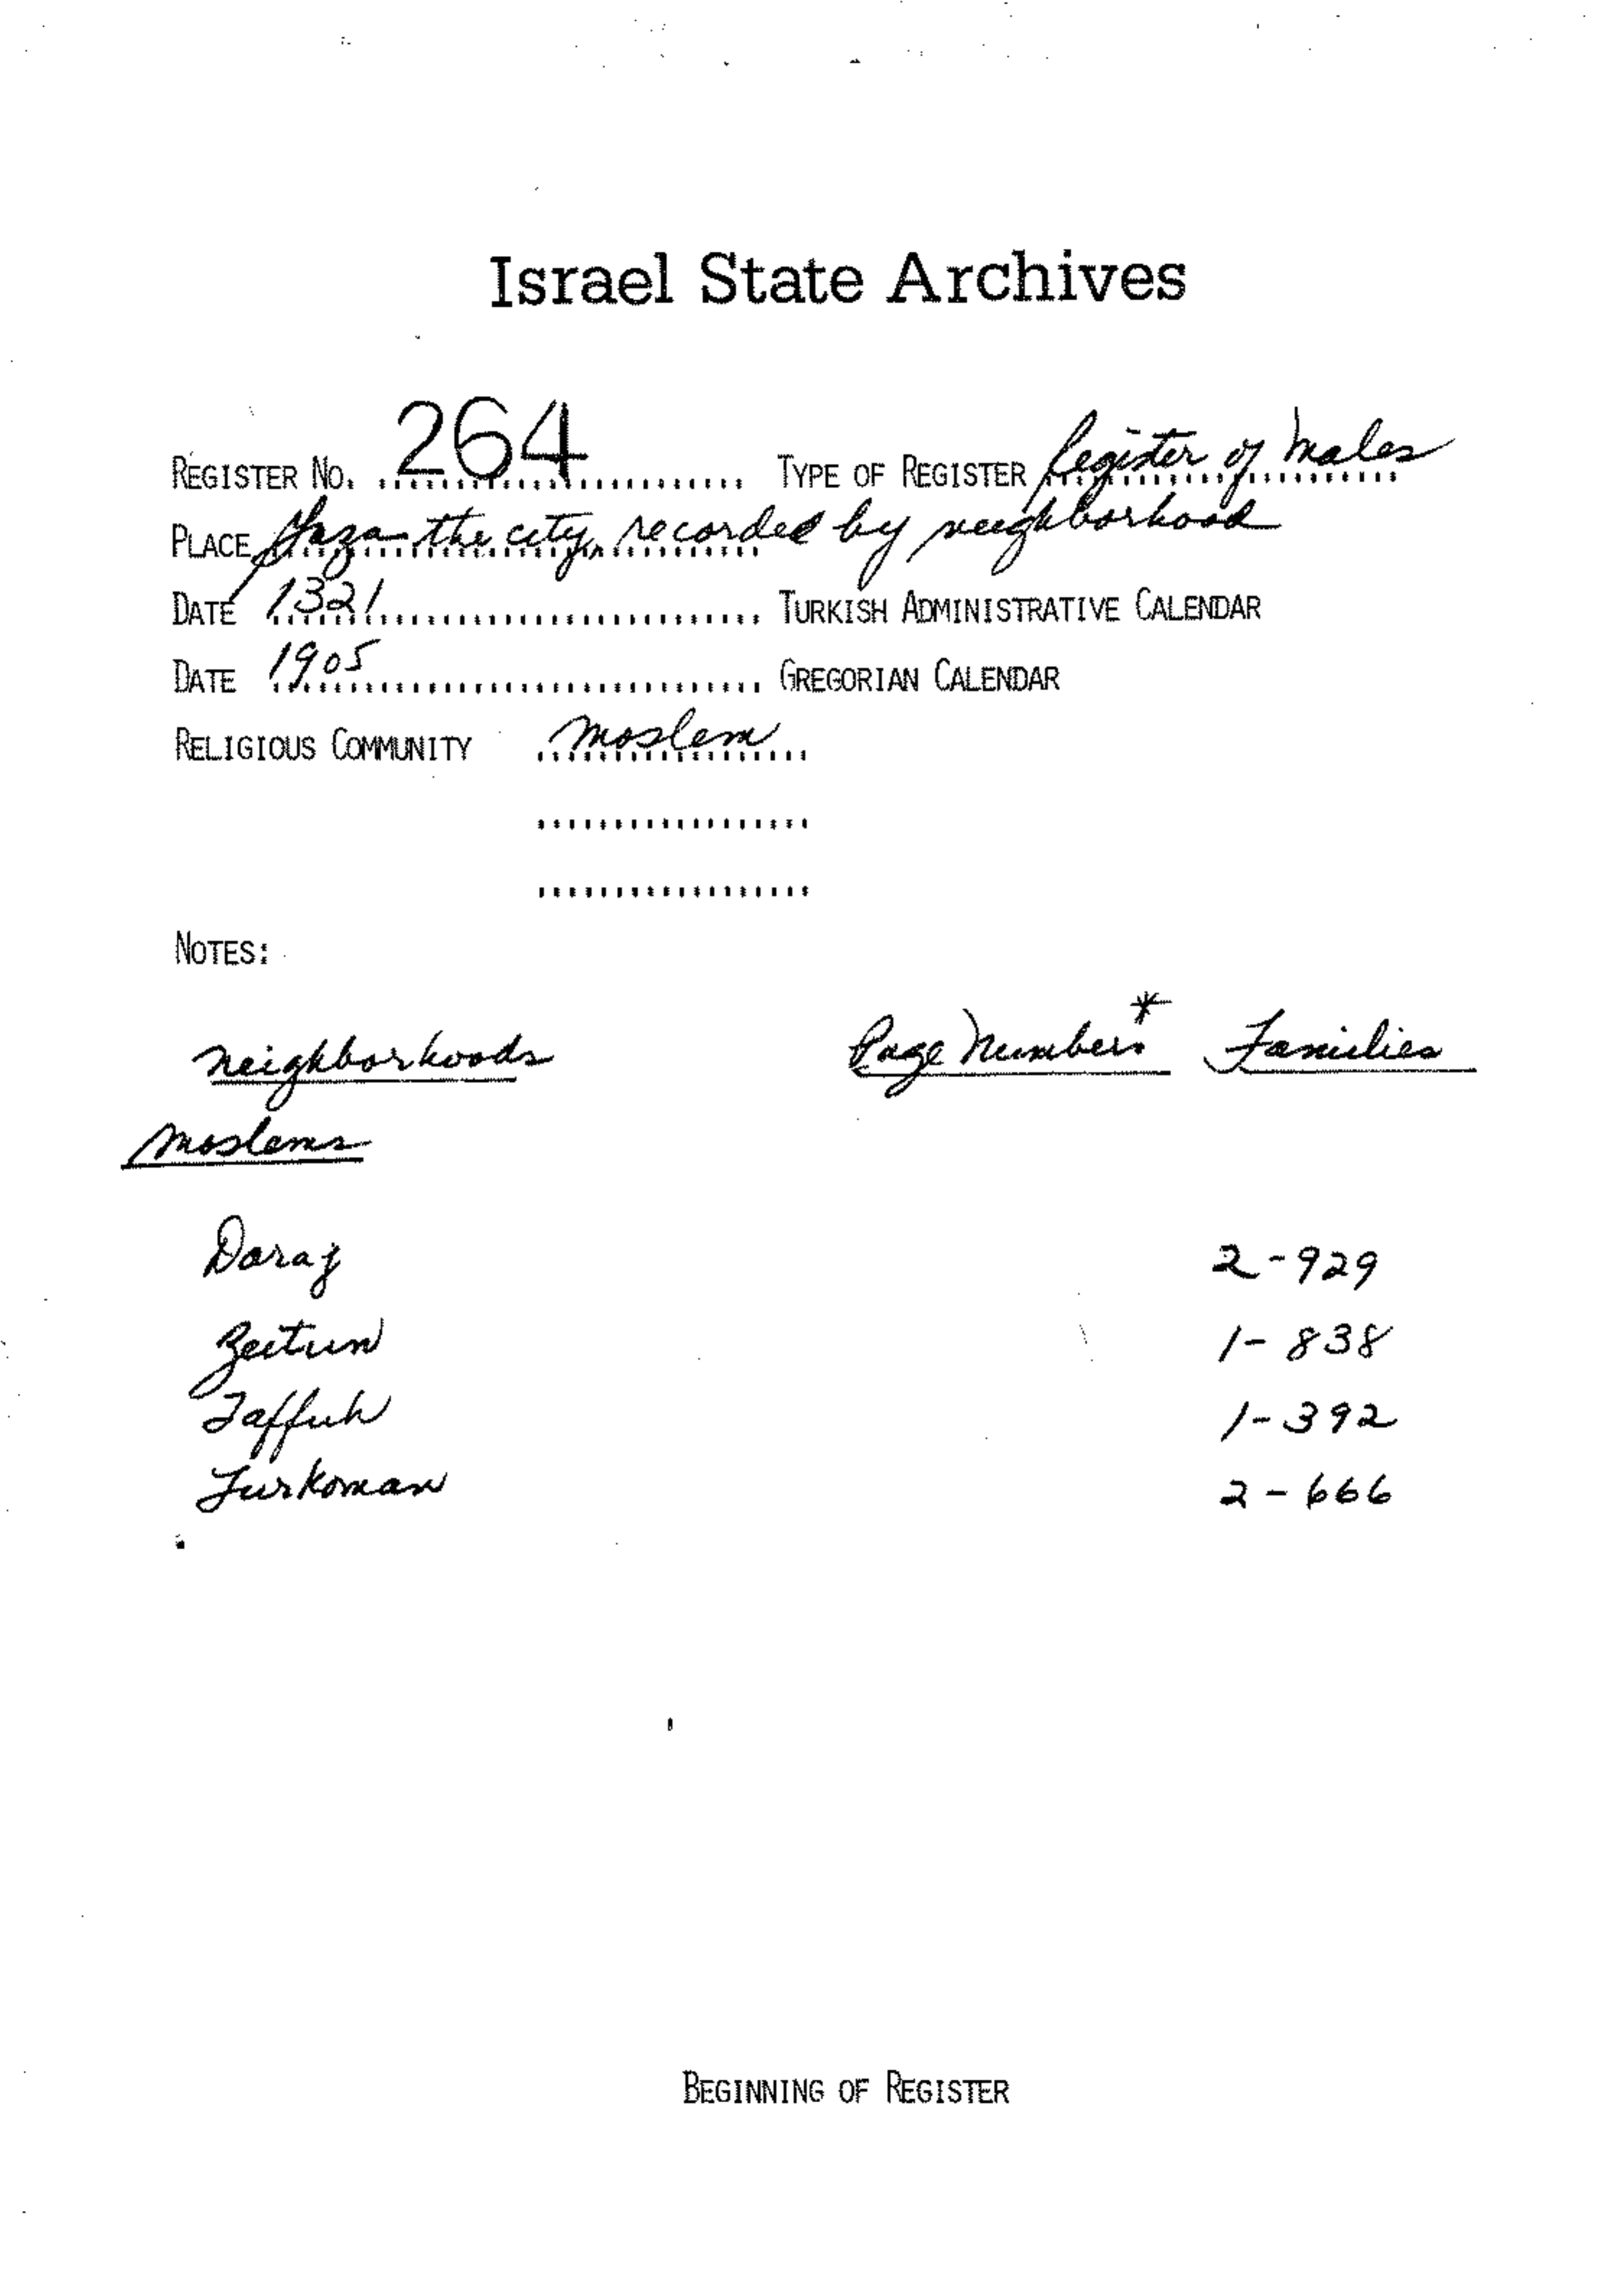 Israel State Archives
REGISTER No. 264 TYPE OF REGISTER Register of Males
PLACE Gaza - the city, recorded by neighborhood
DATE 1321 TURKISH ADMINISTRATIVE CALENDAR
DATE 1905 GREGORIAN CALENDAR
RELIGIOUS COMMUNITY Moslem
NOTES:
Neighborhoods Page Numbers* Families
Moslems
Daraj 2-929
Zeitun 1-838
Taffuh 1-392
Turkoman 2-666
BEGINNING OF REGISTER